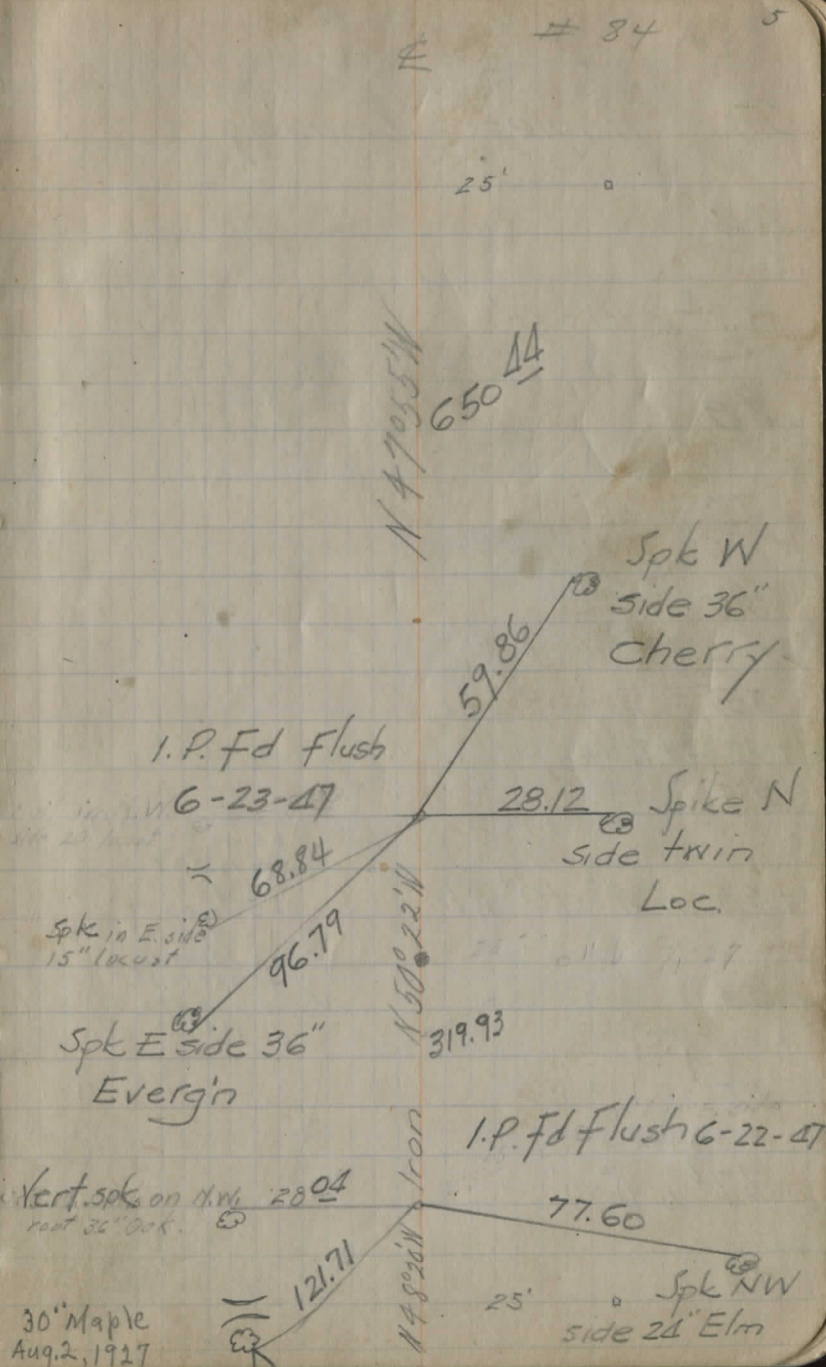 5
# 84
℄
25'
N 47°55'W
650 44
Spk W
side 36"
Cherry
59.86
I.P. Fd Flush
6-23-47
28.12
Spike N
side twin
Loc.
68.84
Spk in E. side
15" locust
96.79
N 50°22'W
Spk E side 36"
Everg'n
319.93
Iron
I.P. Fd Flush 6-22-47
Vert. spk. on N.W.
root 36" Oak.
28 04
77.60
121.71
N 48°26'W
25'
Spk NW
side 24" Elm
30" Maple
Aug. 2, 1927